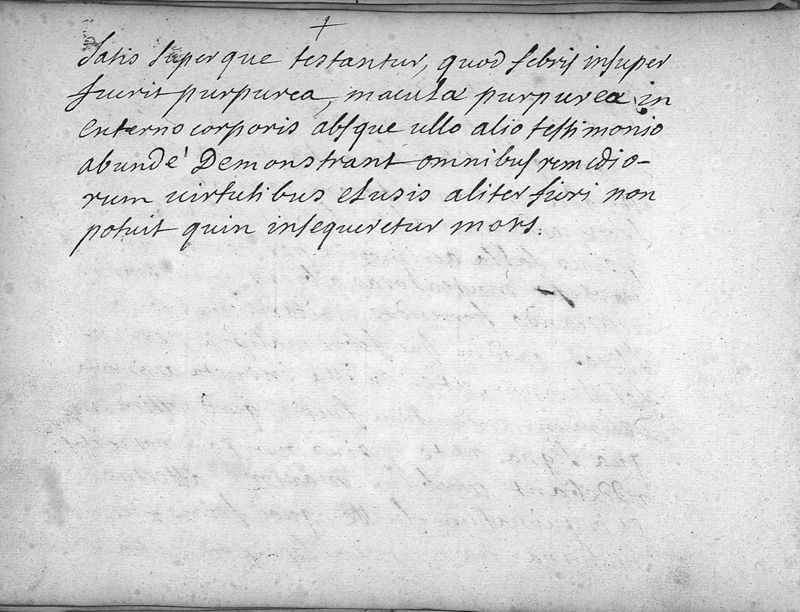 Satis superque testantur, quod febris insuper
fuerit purpurea, macula purpurea in
externo corporis absque ullo alio testimonio
abundè Demonstrant omnibus remedio-
rum virtutibus elusis aliter fieri non
potuit quin insequeretur mors.